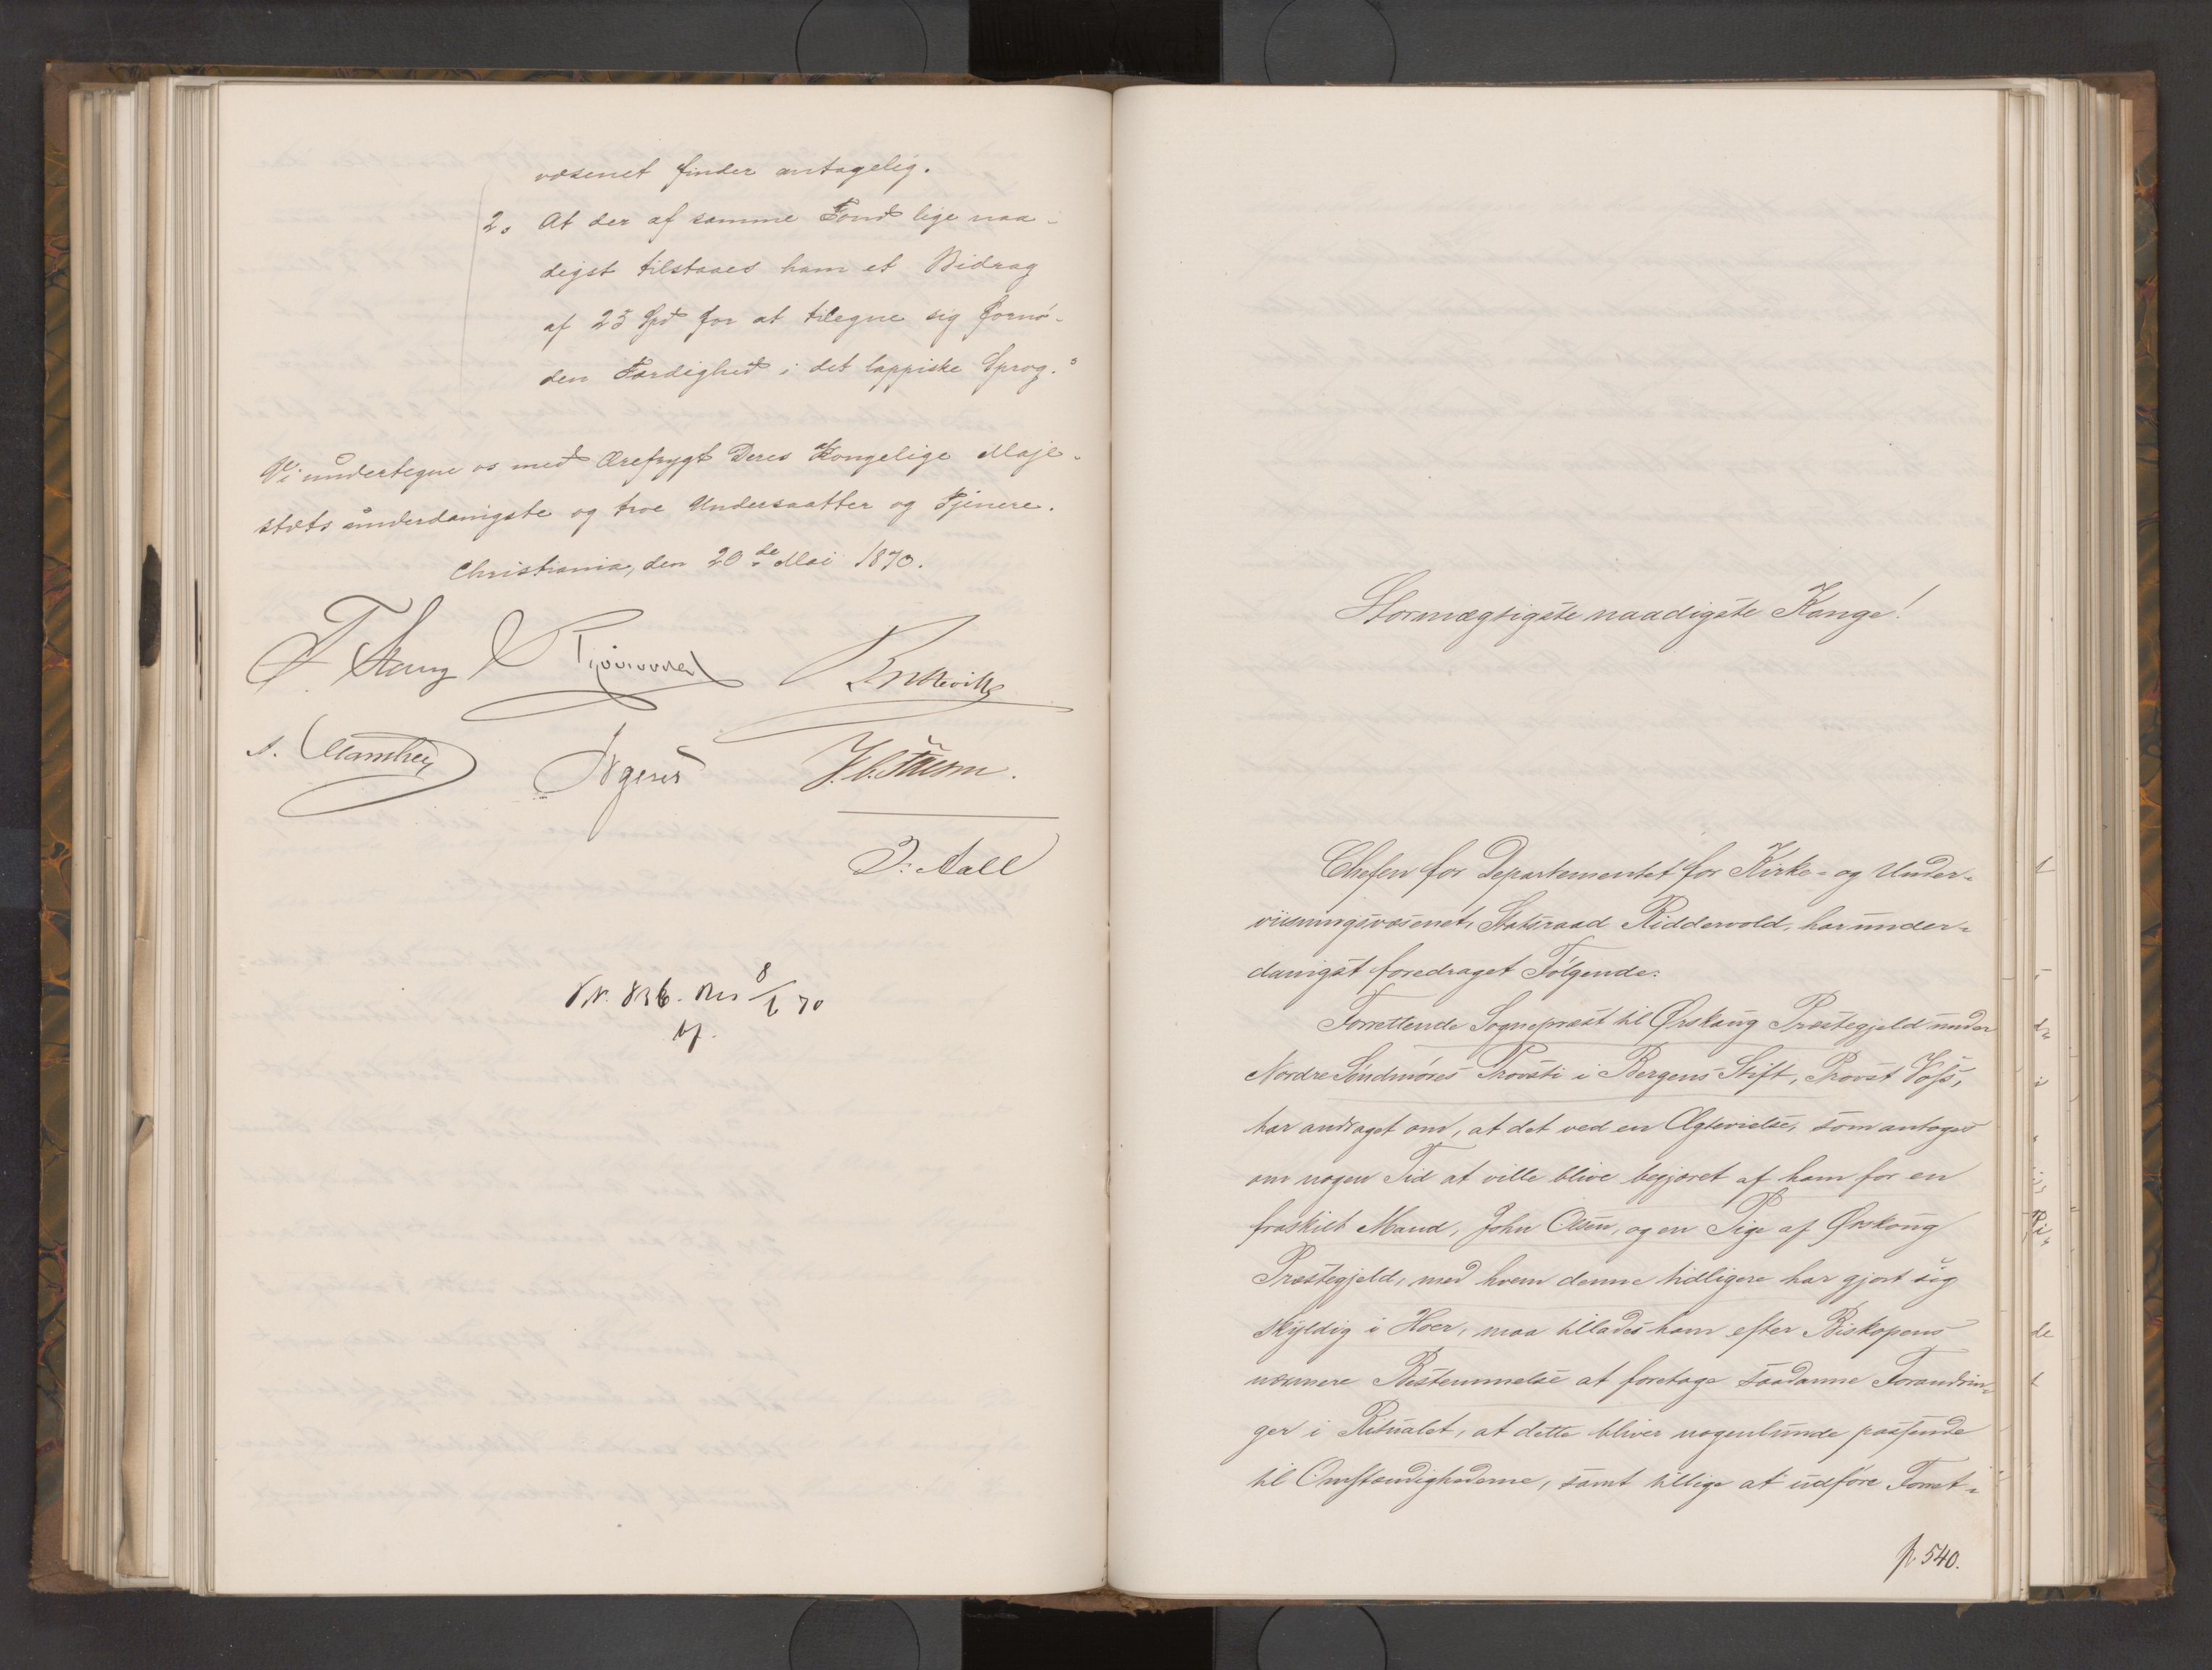 væsenet finder antagelig.
2. At der af samme Fond lige naa-
digst tilstaaes ham et Bidrag
af 25 Spd for at tilegne sig fornø-
den Færdighed i det lappiske Sprog."
Vi undertegne os med Ærefrygt Deres Kongelige Maje-
stæts underdanigste og troe Undersaatter og Tjenere.
Christiania, den 20de Mai 1870.
F. Stang Riddervold
Manthey Irgens
J. Aall
8/6 70
Stormægtigste naadigste Konge!
Chefen for Departementet for Kirke- og Under-
viisningsvæsenet, Statsraad Riddervold, har under-
danigst foredraget Følgende:
Forrettende Sognepræst til Ørskoug Præstegjeld under
Nordre Søndmøres Provsti i Bergens Stift, Provst Voss,
har andraget om, at det ved en Ægtevielse, som antages
om nogen Tid at ville blive begjæret af ham for en
fraskilt Mand, John Olsen, og en Pige af Ørskoug
Præstegjeld, med hvem denne tidligere har gjort sig
skyldig i Hoer, maa tillades ham efter Biskopens
nærmere Bestemmelse at foretage saadanne Forandrin-
ger i Ritualet, at dette bliver nogenlunde passende
til Omstændighederne, samt tillige at udføre Forret-
p. 540.